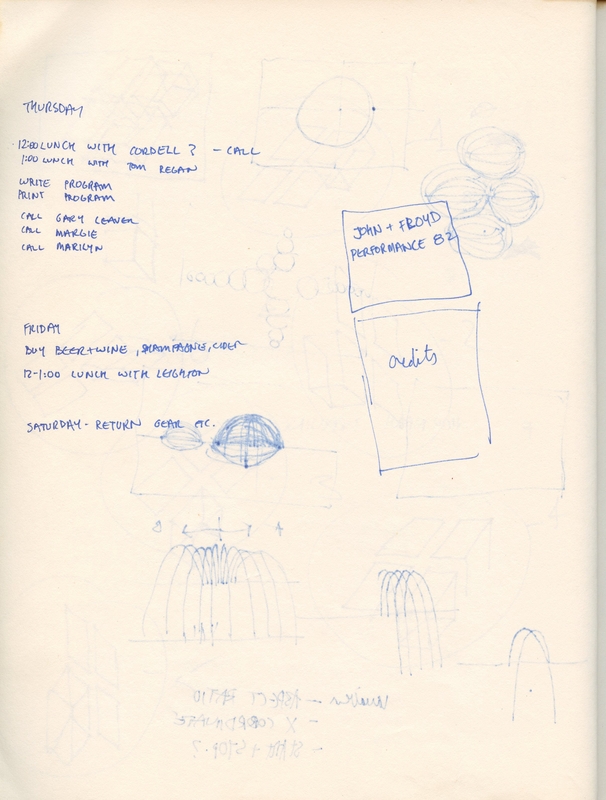 THURSDAY
12:00 LUNCH WITH CORDELL? - CALL
1:00 LUNCH WITH TOM REGAN
WRITE PROGRAM
PRINT PROGRAM
CALL GARY LEAVER
CALL MARGIE
CALL MARILYN
JOHN + FROYD
PERFORMANCE 82
credits
FRIDAY
BUY BEER + WINE, CHAMPAGNE, CIDER
12-1:00 LUNCH WITH LEIGHTON
SATURDAY - RETURN GEAR ETC.
- ASPECT RATIO
- X COORDINATE
- START + STOP?